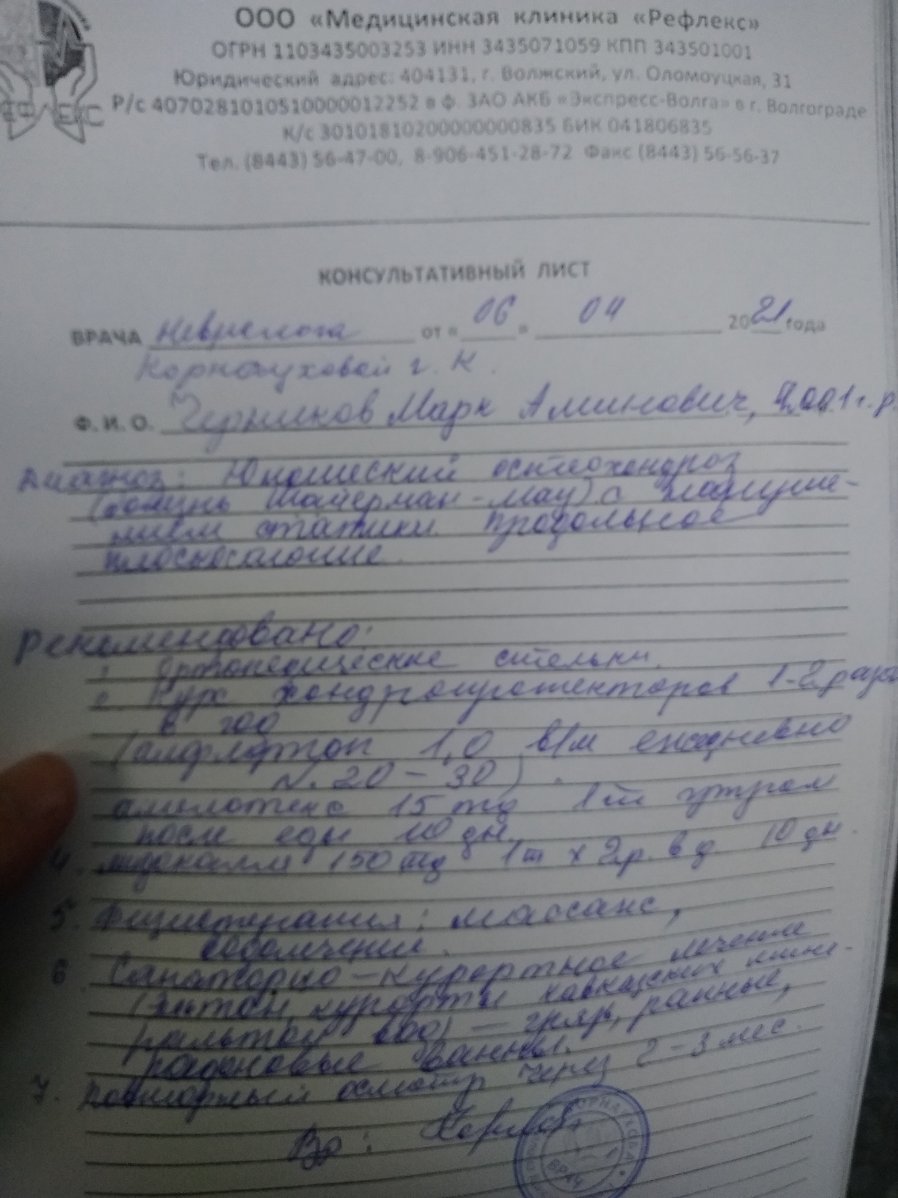 ООО «Медицинская клиника «Рефлекс»
ОГРН 1103435003253 ИНН 3435071059 КПП 343501001
Юридический адрес: 404131, г. Волжский, ул. Оломоуцкая, 31
Р/с 40702810105100000012252 в ф. ЗАО АКБ «Экспресс-Волга» в г. Волгограде
К/с 30101810200000000835 БИК 041806835
Тел. (8443) 56-47-00, 8-906-451-28-72 Факс (8443) 56-56-37
КОНСУЛЬТАТИВНЫЙ ЛИСТ
ВРАЧА Невролога от «06» 04 2021 года
Корнауховой Г. К.
Ф. И. О. Черников Марк Аминович, 2001 г.р.
Диагноз: Юношеский остеохондроз
(болезнь Шойерман-Мау) с наруше-
нием статики. Продольное
плоскостопие.
Рекомендовано:
Ортопедические стельки.
Курс хондропротекторов 1-2 раза
в год
(алфлутоп 1,0 в/м ежедневно
N. 20-30).
амелотекс 15 mg 1т утром
после еды 10 дн.
4. мидокалм 150 mg 1т х 2р. в д 10 дн.
5. Физиотерапия: массаж,
6 Санаторно-курортное лечение
(Эльтон, курорты кавказских мине-
ральных вод) - грязь,
радоновые ванны.
7. Повторный осмотр через 2-3 мес.
Вр:
ВРАЧ